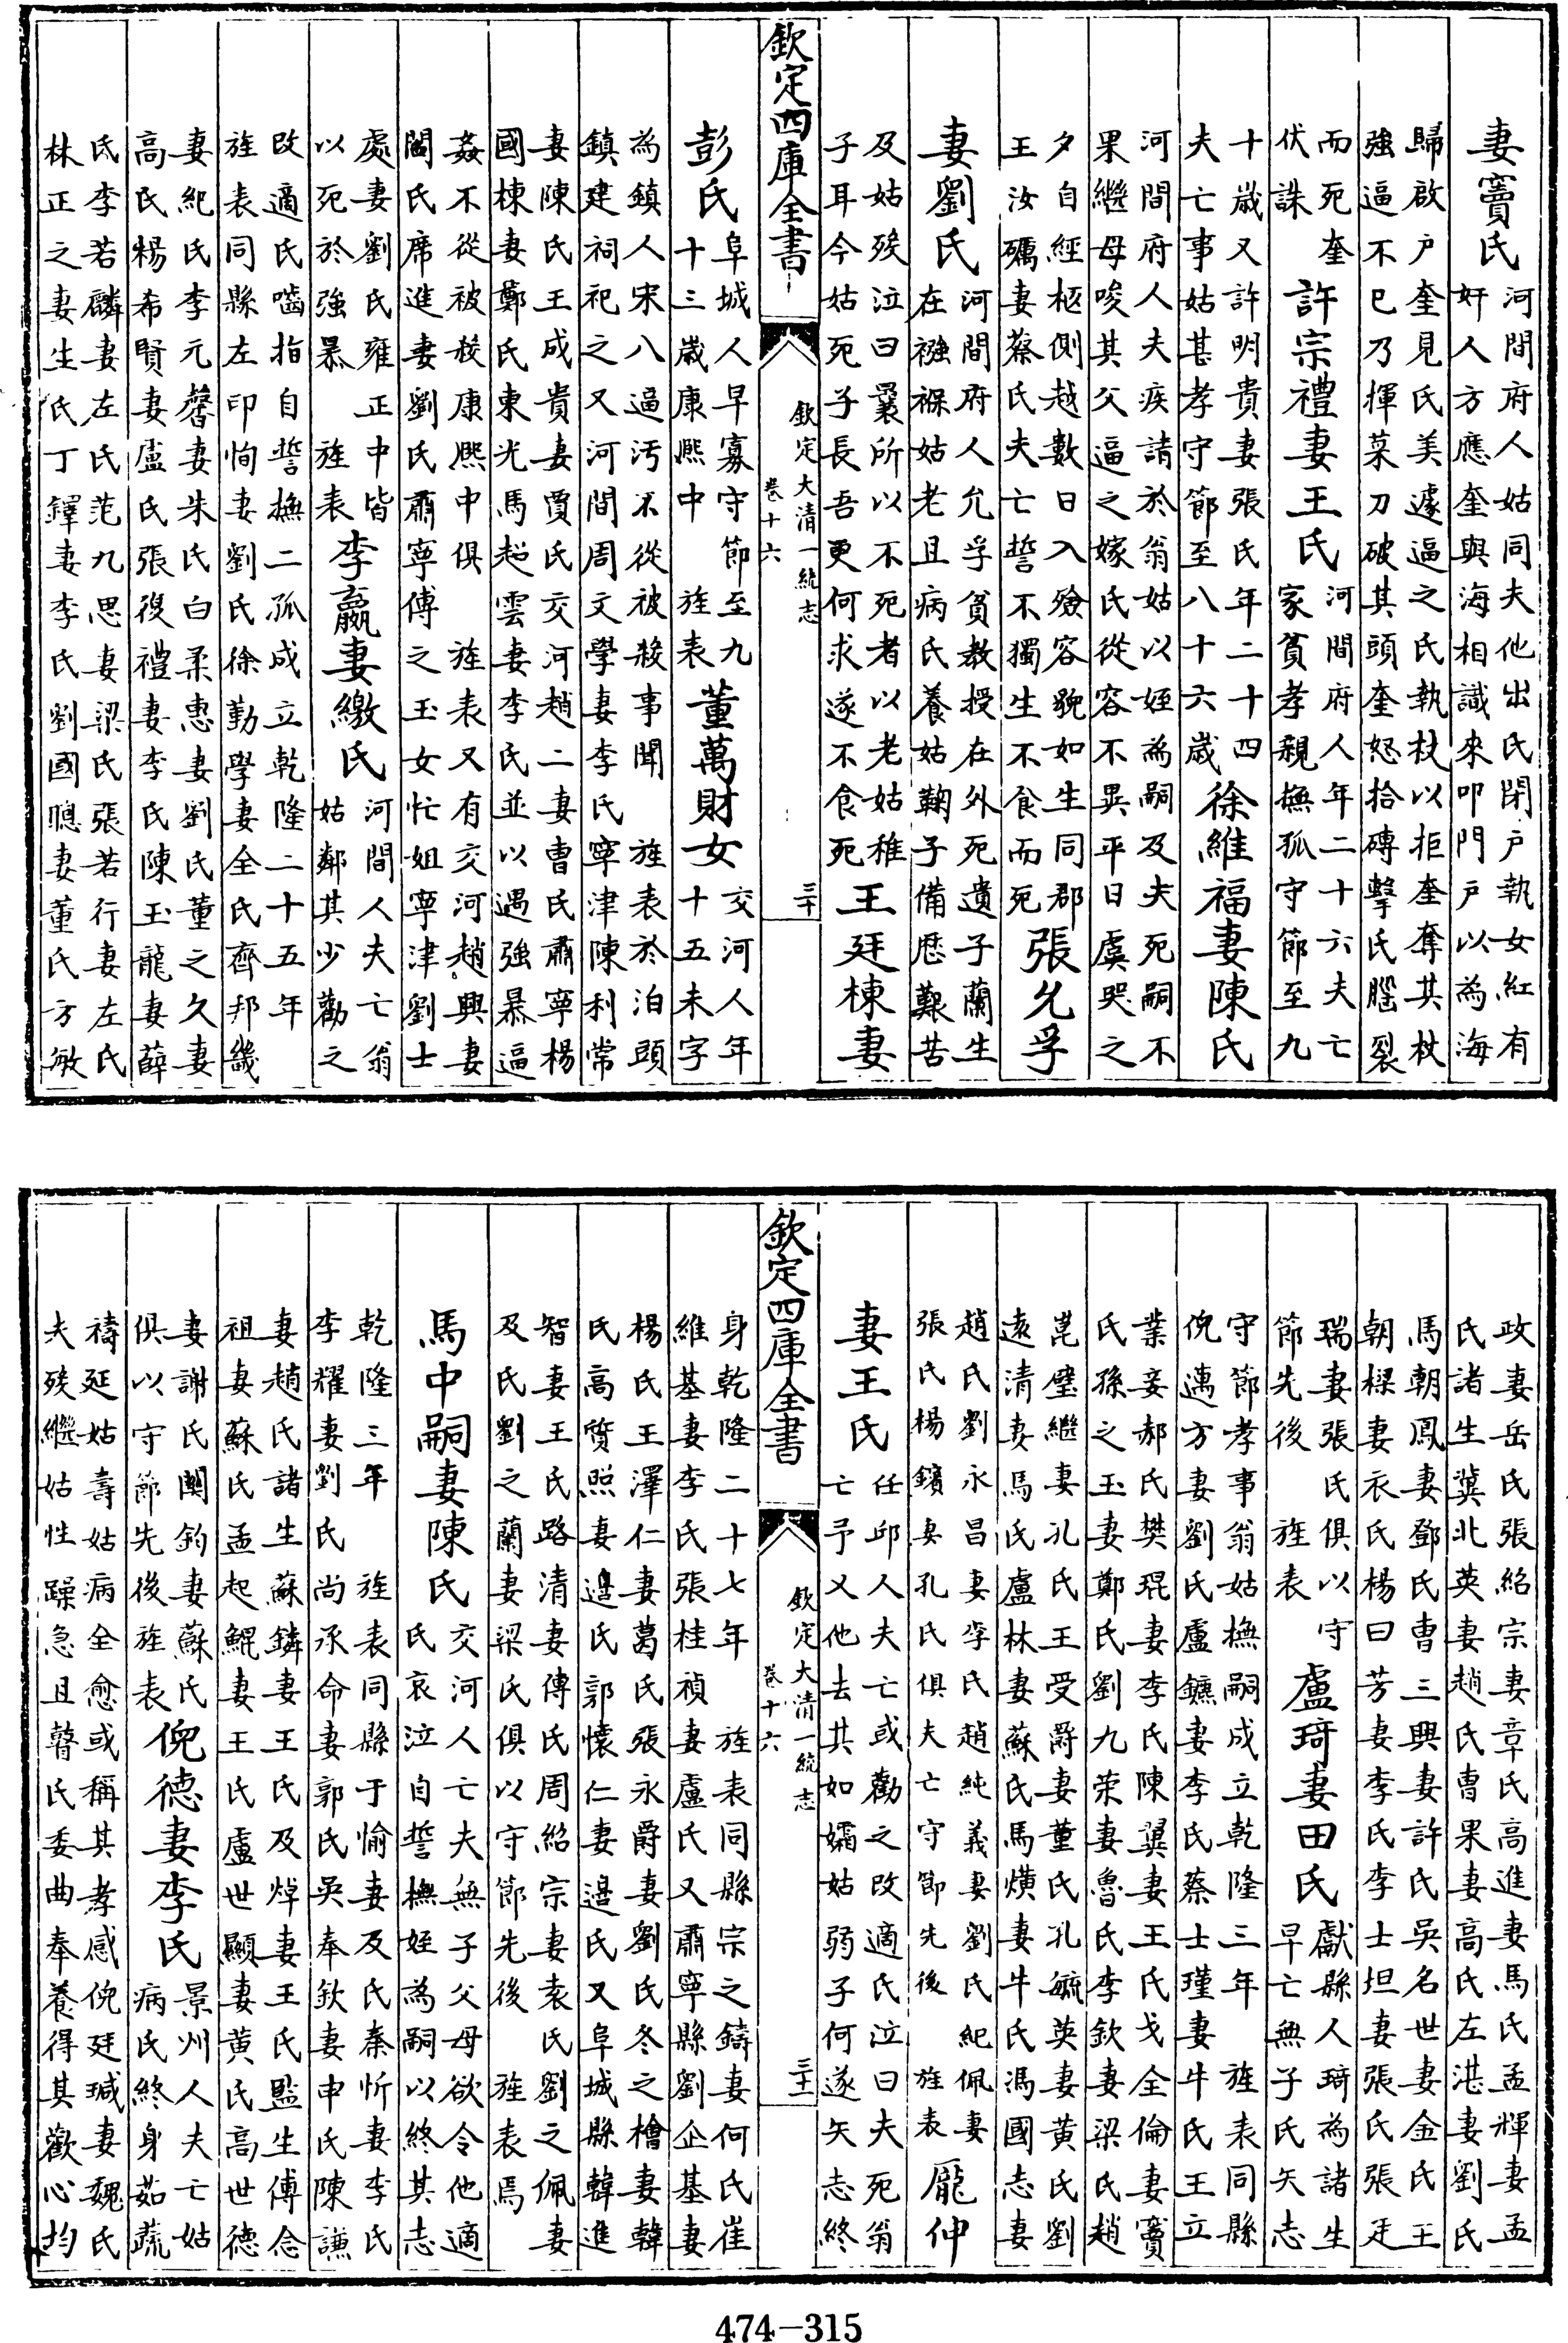 妻竇氏河間府人姑同夫他出氏閉戶執女紅有奸人方應奎與海相識來叩門戶以為海
歸啟戶奎見氏美遽逼之氏執杖以拒奎奪其杖強逼不已乃揮菜刀破其頭奎怒拾磚擊氏腦裂
而死奎伏誅許宗禮妻王氏河間府人年二十六夫亡家貧孝親撫孤守節至九
十歲又許明貴妻張氏年二十四夫亡事姑甚孝守節至八十六歲徐維福妻陳氏
河間府人夫疾請於翁姑以姪為嗣及夫死嗣不果繼母唆其父逼之嫁氏從容不異平日虞哭之
夕自經柩側越數日入殮容貌如生同郡王汝礪妻蔡氏夫亡誓不獨生不食而死張允孚
妻劉氏河間府人允孚貧教授在外死遺子蘭生在襁褓姑老且病氏養姑鞠子備歷艱苦
及姑歿泣曰曩所以不死者以老姑稚子耳今姑死子長吾更何求遂不食死王廷棟妻
欽定四庫全書 欽定大清一統志 卷十六 三十
彭氏阜城人早寡守節至九十三歲康熙中旌表董萬財女交河人年十五未字
為鎮人宋八逼汚不從被殺事聞 旌表於泊頭鎮建祠祀之又河間周文學妻李氏寧津陳利常
妻陳氏王成貴妻賈氏交河趙二妻曹氏肅寧楊國棟妻鄭氏東光馬起雲妻李氏並以遇強暴逼
姦不從被殺康熙中俱 旌表又有交河趙興妻閻氏席進妻劉氏肅寧傅之玉女忙姐寧津劉士
處妻劉氏雍正中皆以死於強暴 旌表李嬴妻繳氏河間人夫亡翁姑鄰其少勸之
改適氏嚙指自誓撫二孤成立乾隆二十五年旌表同縣左印恂妻劉氏徐勤學妻全氏齊邦畿
妻紀氏李元馨妻朱氏白柔惠妻劉氏董之久妻高氏楊希賢妻盧氏張復禮妻李氏陳玉龍妻薛
氏李若麟妻左氏范九思妻梁氏張若行妻左氏林正之妻生氏丁鐸妻李氏劉國聰妻董氏方敏
政妻岳氏張紹宗妻章氏高進妻馬氏孟輝妻孟氏諸生冀北英妻趙氏曹果妻高氏左湛妻劉氏
馬朝鳳妻鄧氏曹三興妻許氏吳名世妻金氏王朝樑妻衣氏楊曰芳妻李氏李士坦妻張氏張廷
瑞妻張氏俱以守節先後 旌表盧琦妻田氏獻縣人琦為諸生早亡無子氏矢志
守節孝事翁姑撫嗣成立乾隆三年 旌表同縣倪邁方妻劉氏盧鑣妻李氏蔡士瑾妻牛氏王立
業妾郝氏樊琨妻李氏陳巽妻王氏戈全倫妻竇氏孫之玉妻鄭氏劉九荣妻魯氏李欽妻梁氏趙
崑璧繼妻孔氏王受爵妻董氏孔毓英妻黄氏劉遠清妻馬氏盧林妻蘇氏馬熿妻牛氏馮國志妻
趙氏劉永昌妻李氏趙純義妻劉氏紀佩妻張氏楊鑌妻孔氏俱夫亡守節先後 旌表龎仲
妻王氏任邱人夫亡或勸之改適氏泣曰夫死翁亡予又他去其如孀姑弱子何遂矢志終
欽定四庫全書 欽定大清一統志 卷十六 三十一
身乾隆二十七年 旌表同縣宗之鑄妻何氏崔維基妻李氏張桂禎妻盧氏又肅寧縣劉企基妻
楊氏王澤仁妻葛氏張永爵妻劉氏冬之檜妻韓氏高質熙妻邉氏郭懷仁妻邉氏又阜城縣韓進
智妻王氏路清妻傅氏周紹宗妻袁氏劉之佩妻及氏劉之蘭妻梁氏俱以守節先後 旌表馬
馬中嗣妻陳氏交河人亡夫無子父母欲令他適氏哀泣自誓撫姪為嗣以終其志
乾隆三年 旌表同縣于愉妻及氏秦忻妻李氏李耀妻劉氏尚承命妻郭氏吳奉欽妻申氏陳謙
妻趙氏諸生蘇鏻妻王氏及焯妻王氏監生傅念祖妻蘇氏孟起鯤妻王氏盧世顯妻黄氏高世德
妻謝氏闞鈞妻蘇氏俱以守節先後旌表倪德妻李氏景州人夫亡姑病氏終身茹蔬
禱延姑壽姑病全愈或稱其孝感倪廷瑊妻魏氏夫歿繼姑性躁急且瞽氏委曲奉養得其歡心均
474-315